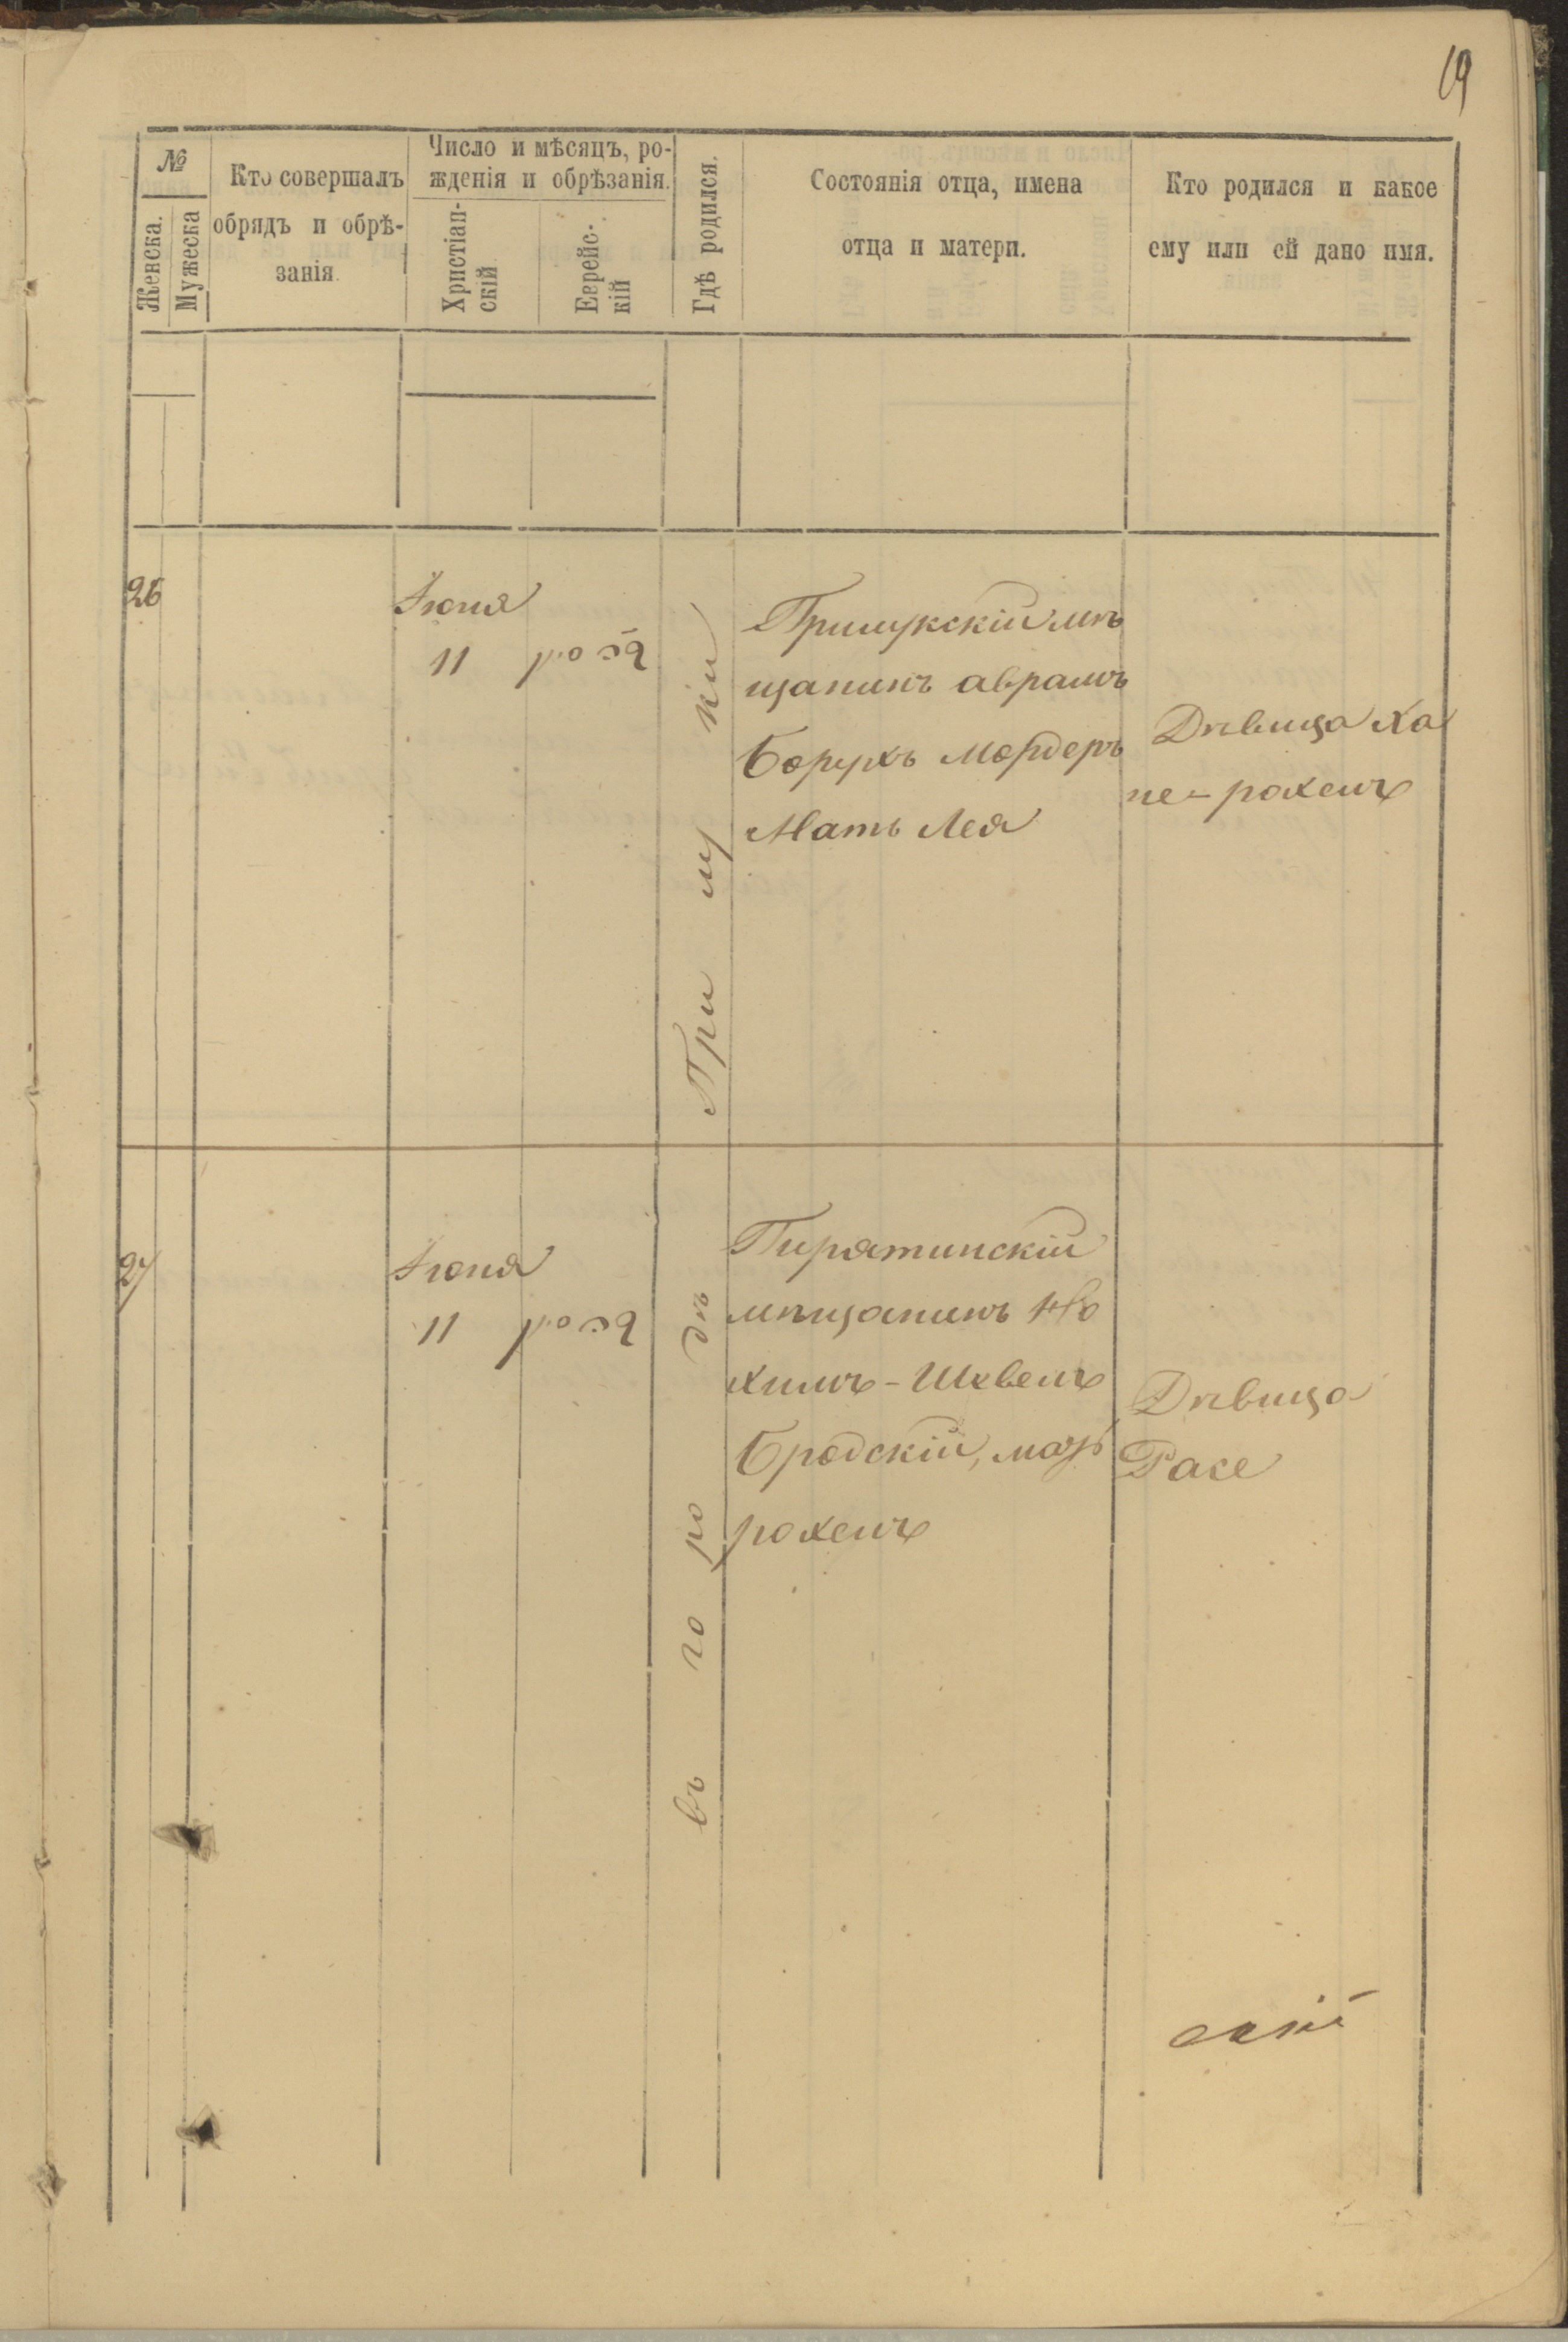 19
№
Женска.
Мужеска
Кто совершалъ
обрядъ и обрѣ-
занія.
Число и мѣсяцъ, ро-
жденія и обрѣзанія.
Христіан-
скій.
Еврейс-
кій
Гдѣ родился.
Состоянія отца, имена
отца и матери.
Кто родился и какое
ему или ей дано имя.
26
Іюня
11
Прилукскій мѣ
щанинъ аврамъ
Борухъ Мордеръ
Мать Лея
Дѣвица Ха
не-рохель
27
Іюня
11
въ городѣ Прилуки
Пирятинскій
мѣщанинъ Но
химъ-Шевель
Бродскій, мать
рохель
Дѣвица
Расе
скій